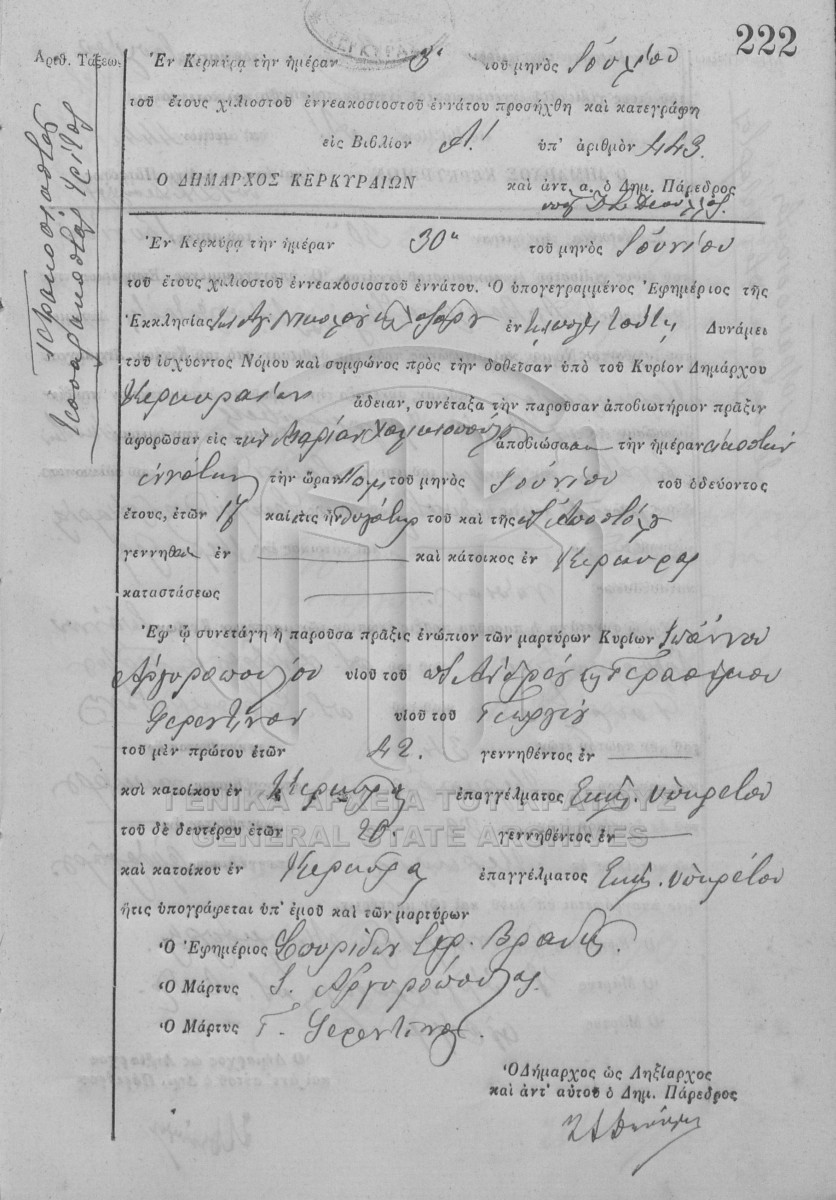 222
ΚΕΡΚΥΡΑ
Ἀριθ. Τάξεως
τετρακοσιοστὸς
τεσσαρακοστὸς τρίτος
Ἐν Κερκύρᾳ τὴν ἡμέραν 3η τοῦ μηνὸς Ἰουλίου
τοῦ ἔτους χιλιοστοῦ ἐννεακοσιοστοῦ ἐννάτου προσήχθη καὶ κατεγράφη
εἰς Βιβλίον Α! ὑπ' ἀριθμὸν 443.
Ο ΔΗΜΑΡΧΟΣ ΚΕΡΚΥΡΑΙΩΝ καὶ ἀντ. α. ὁ Δημ. Πάρεδρος
Ἐν Κερκύρᾳ τὴν ἡμέραν 30η τοῦ μηνὸς Ἰουνίου
τοῦ ἔτους χιλιοστοῦ ἐννεακοσιοστοῦ ἐννάτου. Ὁ ὑπογεγραμμένος Ἐφημέριος τῆς
Ἐκκλησίας Ἁγ. Νικολάου Λαζάρου ἐν Δυνάμει
τοῦ ἰσχύοντος Νόμου καὶ συμφώνος πρὸς τὴν δοθεῖσαν ὑπὸ τοῦ Κυρίου Δημάρχου
Κερκυραίων ἄδειαν, συνέταξα τὴν παροῦσαν ἀποβιωτήριον πρᾶξιν
ἀφορῶσαν εἰς τὴν Μαρίαν ἀποβιώσασαν τὴν ἡμέραν εἰκοστὴν
ἐννάτην τὴν ὥραν τοῦ μηνὸς Ἰουνίου τοῦ ὁδεύοντος
ἔτους, ἐτῶν 17 καὶ ἥτις ἦν θυγάτηρ τοῦ καὶ τῆς Ἀποστόλου
γεννηθεῖσα ἐν καὶ κάτοικος ἐν Κερκύρᾳ
καταστάσεως
Ἐφ' ᾧ συνετάγη ἡ παροῦσα πρᾶξις ἐνώπιον τῶν μαρτύρων Κυρίων Ἰωάννου
Ἀργυροπούλου υἱοῦ τοῦ Ἀνδρέου καὶ Γερασίμου
Φερεντίνου υἱοῦ τοῦ Γεωργίου
τοῦ μὲν πρώτου ἐτῶν 42. γεννηθέντος ἐν
καὶ κατοίκου ἐν Κερκύρᾳ ἐπαγγέλματος Ἐκκλ. ὑπηρέτου
τοῦ δὲ δευτέρου ἐτῶν 20. γεννηθέντος ἐν
καὶ κατοίκου ἐν Κερκύρᾳ ἐπαγγέλματος Ἐκκλ. ὑπηρέτου
ἥτις ὑπογράφεται ὑπ' ἐμοῦ καὶ τῶν μαρτύρων
Ὁ Ἐφημέριος Σπυρίδων
Ὁ Μάρτυς Ι. Ἀργυρόπουλος.
Ὁ Μάρτυς Γ. Φερεντίνος.
Ὁ Δήμαρχος ὡς Ληξίαρχος
καὶ ἀντ' αὐτοῦ ὁ Δημ. Πάρεδρος
ΓΕΝΙΚΑ ΑΡΧΕΙΑ ΤΟΥ ΚΡΑΤΟΥΣ
GENERAL STATE ARCHIVES